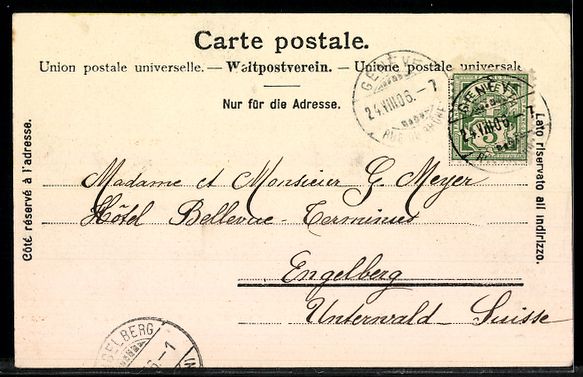 Carte postale.
Union postale universelle. — Weltpostverein. — Unione postale universale
Nur für die Adresse.
Côté réservé à l'adresse.
Lato riservato all indirizzo.
GENÈVE
24.VIII.06.-7
RUE DU
GENÈVE
24.VIII.06.-7
5
Madame et Monsieur G. Meyer
Hôtel Bellevue-Terminus
Engelberg
Unterwald-Suisse
GELBERG
6.-1